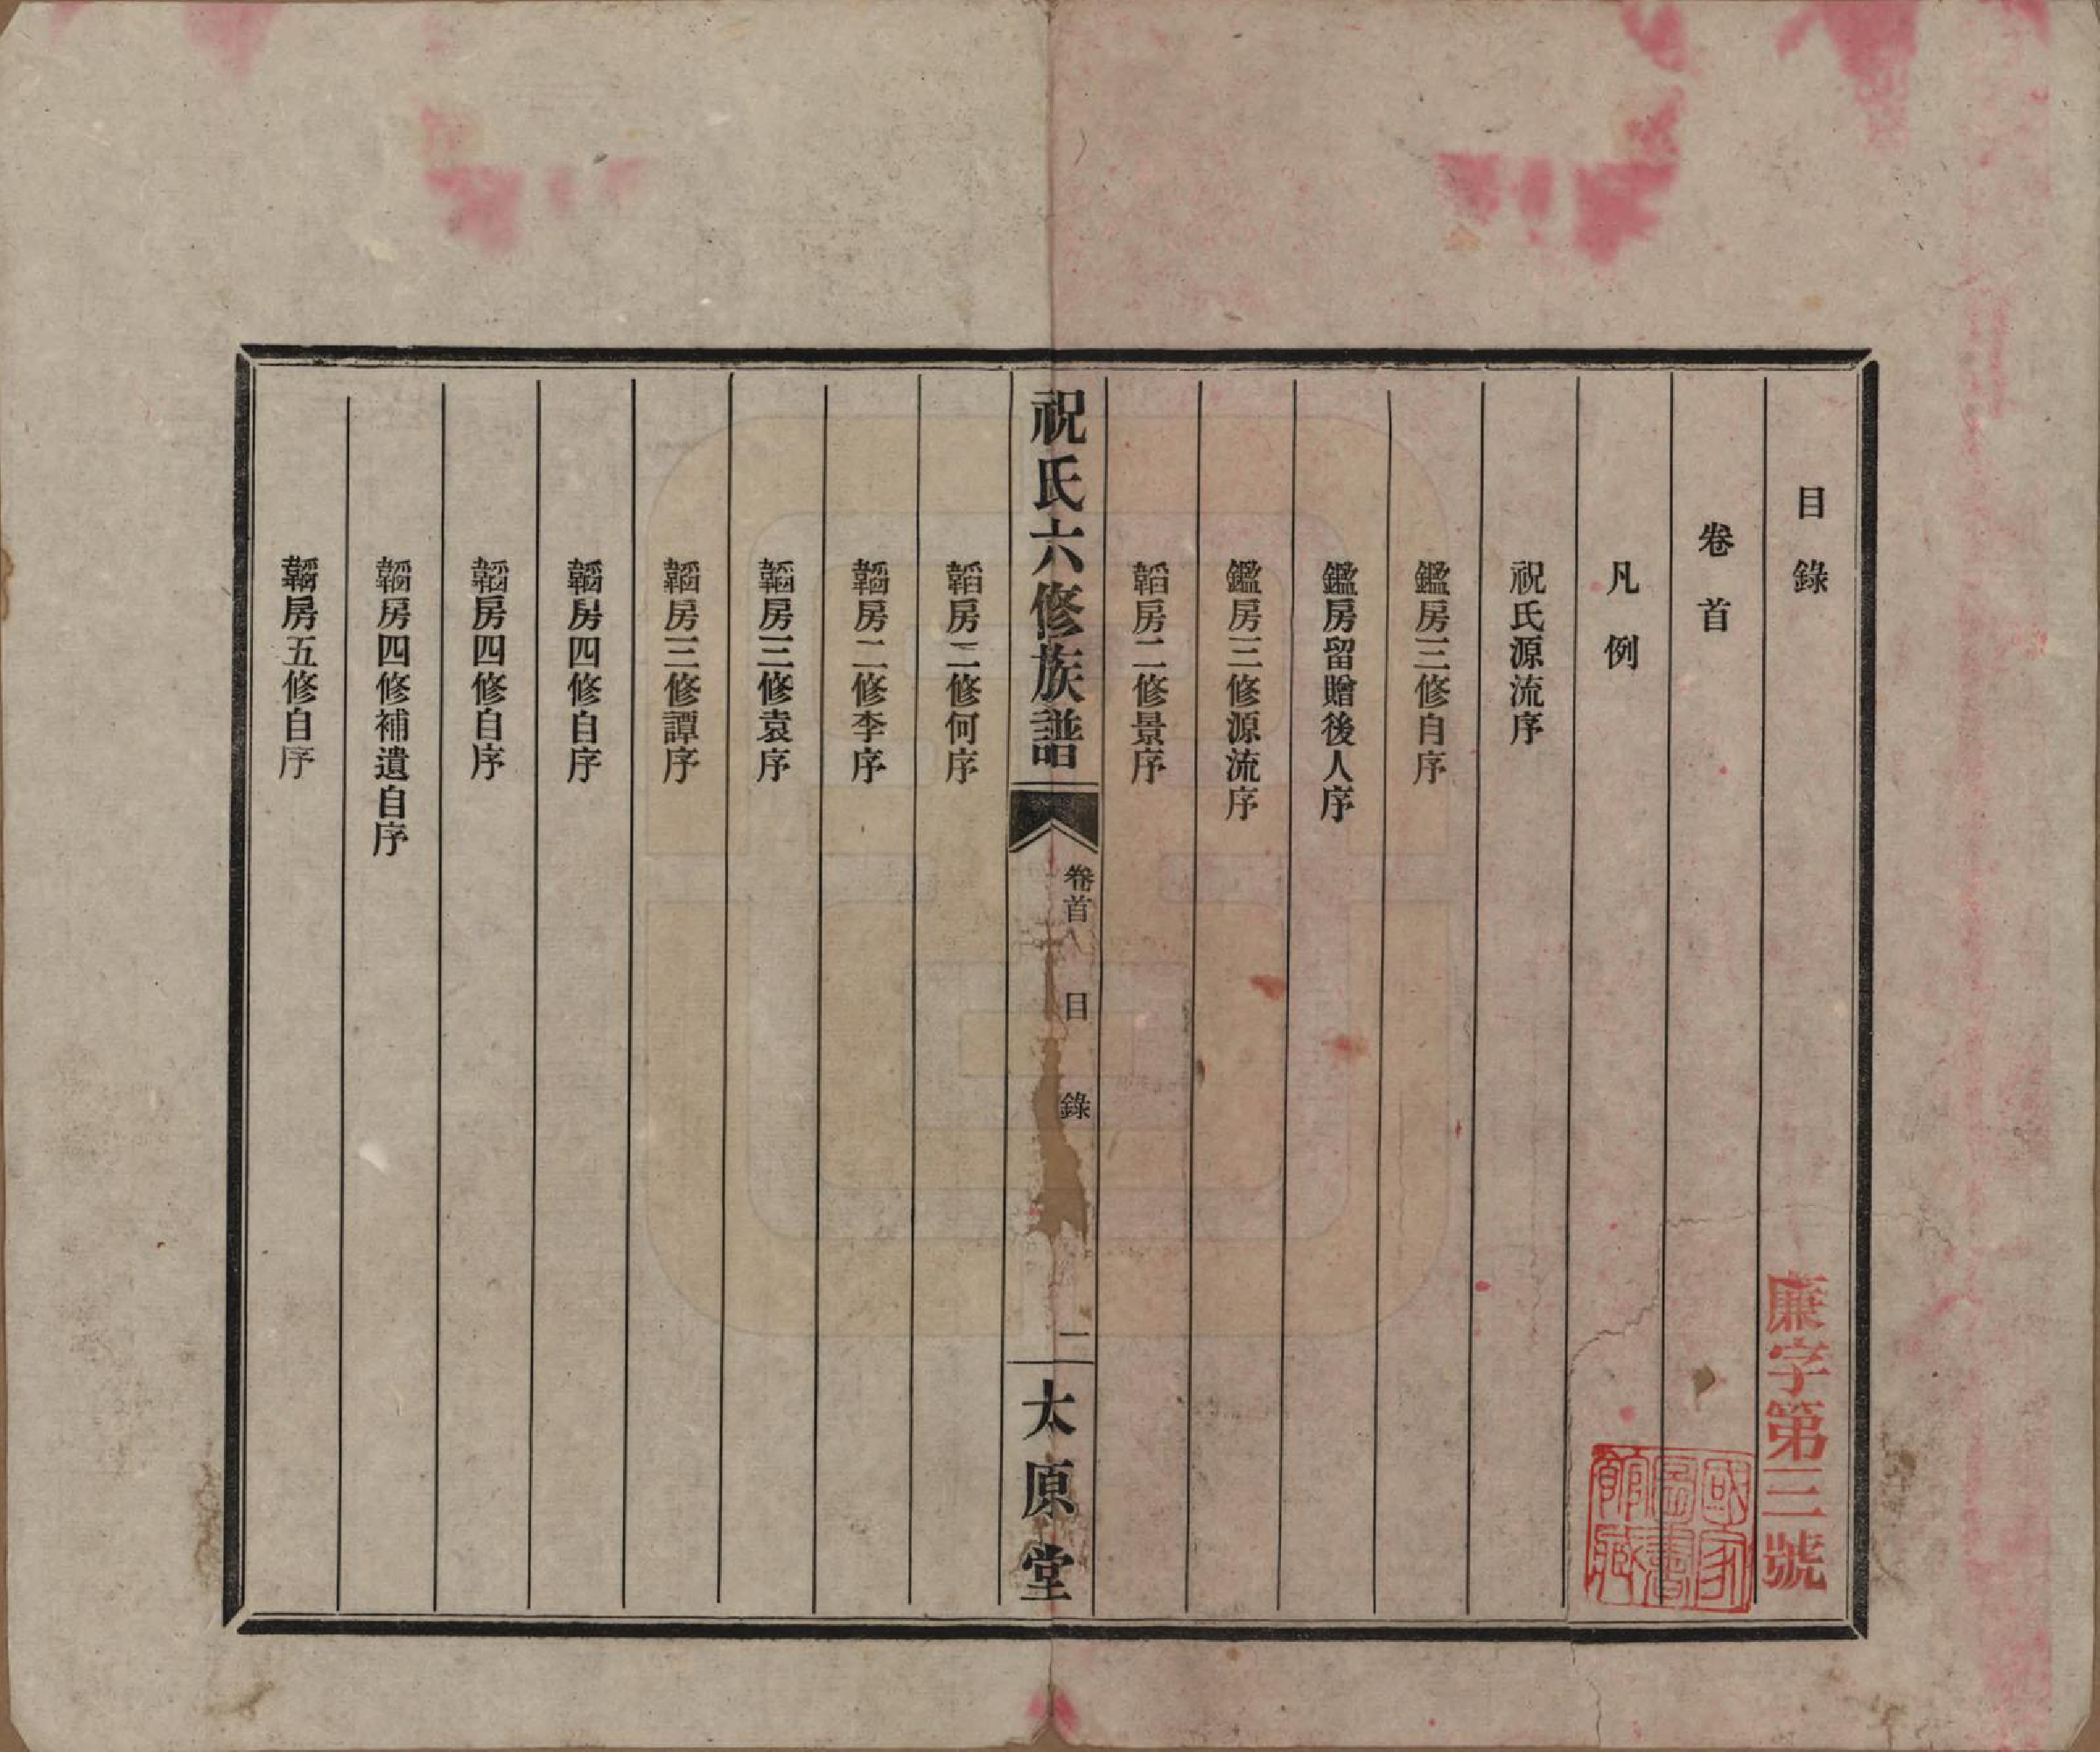 目錄
卷首
凡例
祝氏源流序
鑑房三修自序
鑑房留贈後人序
鑑房三修源流序
韜房二修景序
祝氏六修族譜
卷首
目錄
一
太原堂
韜房二修何序
韜房二修李序
韜房三修袁序
韜房三修譚序
韜房四修自序
韜房四修自序
韜房四修補遺自序
韜房五修自序
廉字第三號
國家圖書館藏